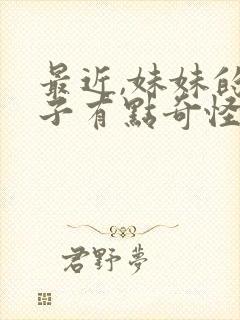 最近,妹妹的
子有點奇怪
君野夢